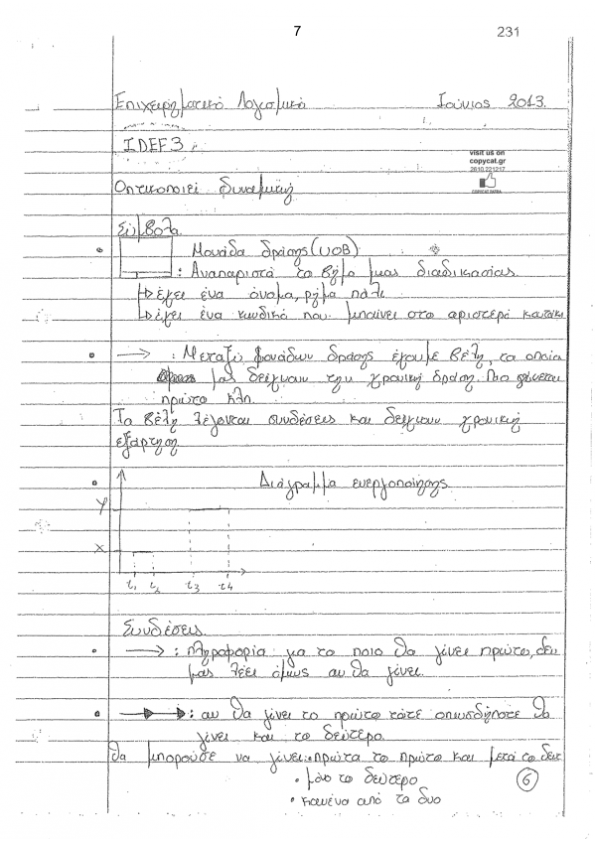 7
231
Επιχειρηματικό Λογισμικό Ιούνιος 2013.
visit us on
copycat.gr
2610 221217
IDEF3
Οπτικοποιεί δυναμική
Σύμβολα.
• Μονάδα δράσης (UOB)
: Αναπαριστά το βήμα μιας διαδικασίας.
↳ έχει ένα όνομα, ρήμα πάλι
↳ έχει ένα κωδικό που μπαίνει στο αριστερό κουτάκι
• → : Μεταξύ μονάδων δράσης έχουμε βέλη, τα οποία
μας δείχνουν την χρονική δράση. Ποιο γίνεται
πρώτο κλπ.
Τα βέλη λέγονται συνδέσεις και δείχνουν χρονική
εξάρτηση
• Διάγραμμα ενεργοποίησης.
y
x
t1 t2 t3 t4
Συνδέσεις.
• → : πληροφορία για το ποιο θα γίνει πρώτο, δεν
μας λέει όμως αν θα γίνει.
• : αν θα γίνει το πρώτο τότε οπωσδήποτε θα
γίνει και το δεύτερο.
θα μπορούσε να γίνει: • πρώτα το πρώτο και μετά το δευτ
• μόνο το δεύτερο
• κανένα από τα δυο
6